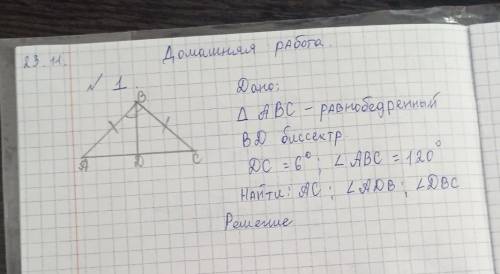 23.11. Домашняя работа.
№ 1.
B
A D C
Дано:
Δ ABC – равнобедренный
BD биссектр.
DC = 6°; ∠ABC = 120°
Найти: AC; ∠ADB; ∠DBC
Решение